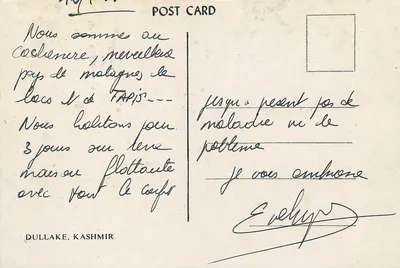 POST CARD
Nous sommes au
Cachemire, merveilleux
pays de montagnes de
lacs et de TAPIS---
Nous habitons pour
3 jours sur une
maison flottante
avec tout le confort
DULLAKE, KASHMIR
jusqu'a présent pas de
maladie ni de
problème
je vous embrasse
Evelyne